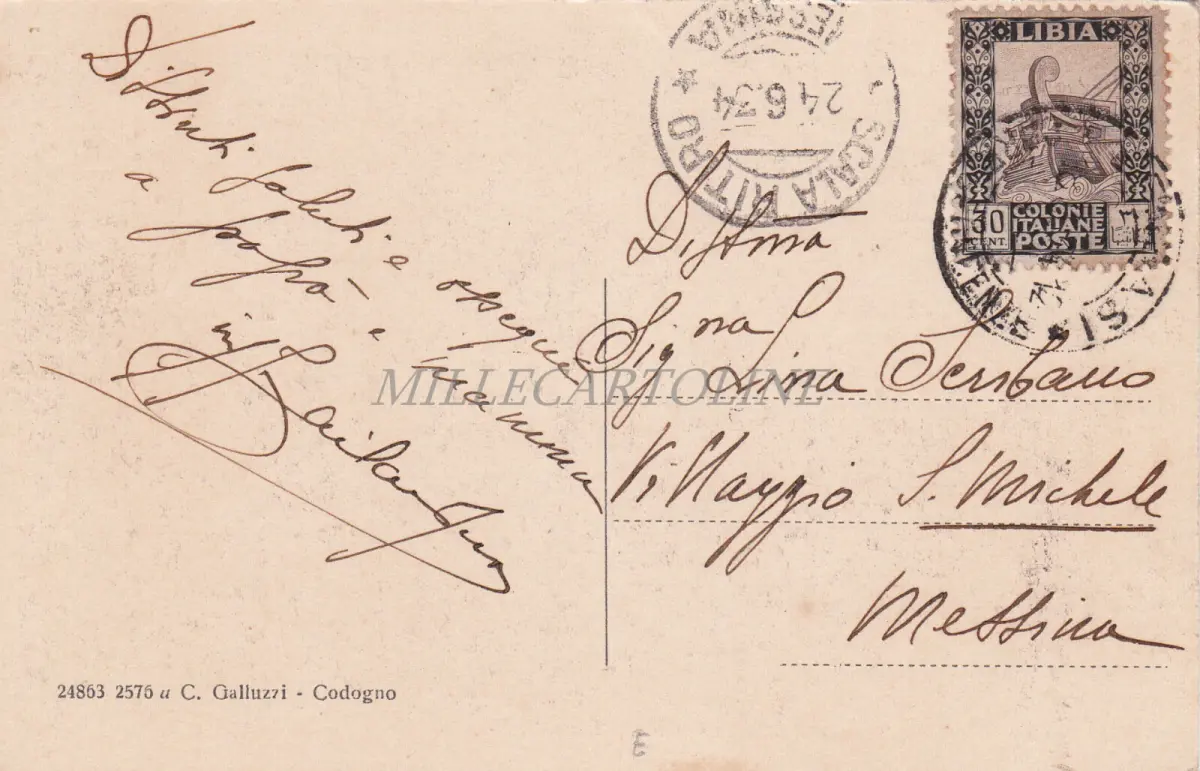 Distinti saluti e ossequi
a papà e mamma
MESSINA
SCALA RITIRO
24.6.34
LIBIA
30
CENT.
COLONIE
ITALIANE
POSTE
Dist.ma
Sig.na Lina Scribano
Villaggio S. Michele
Messina
MILLECARTOLINE
24863 2576 a C. Galluzzi - Codogno
E